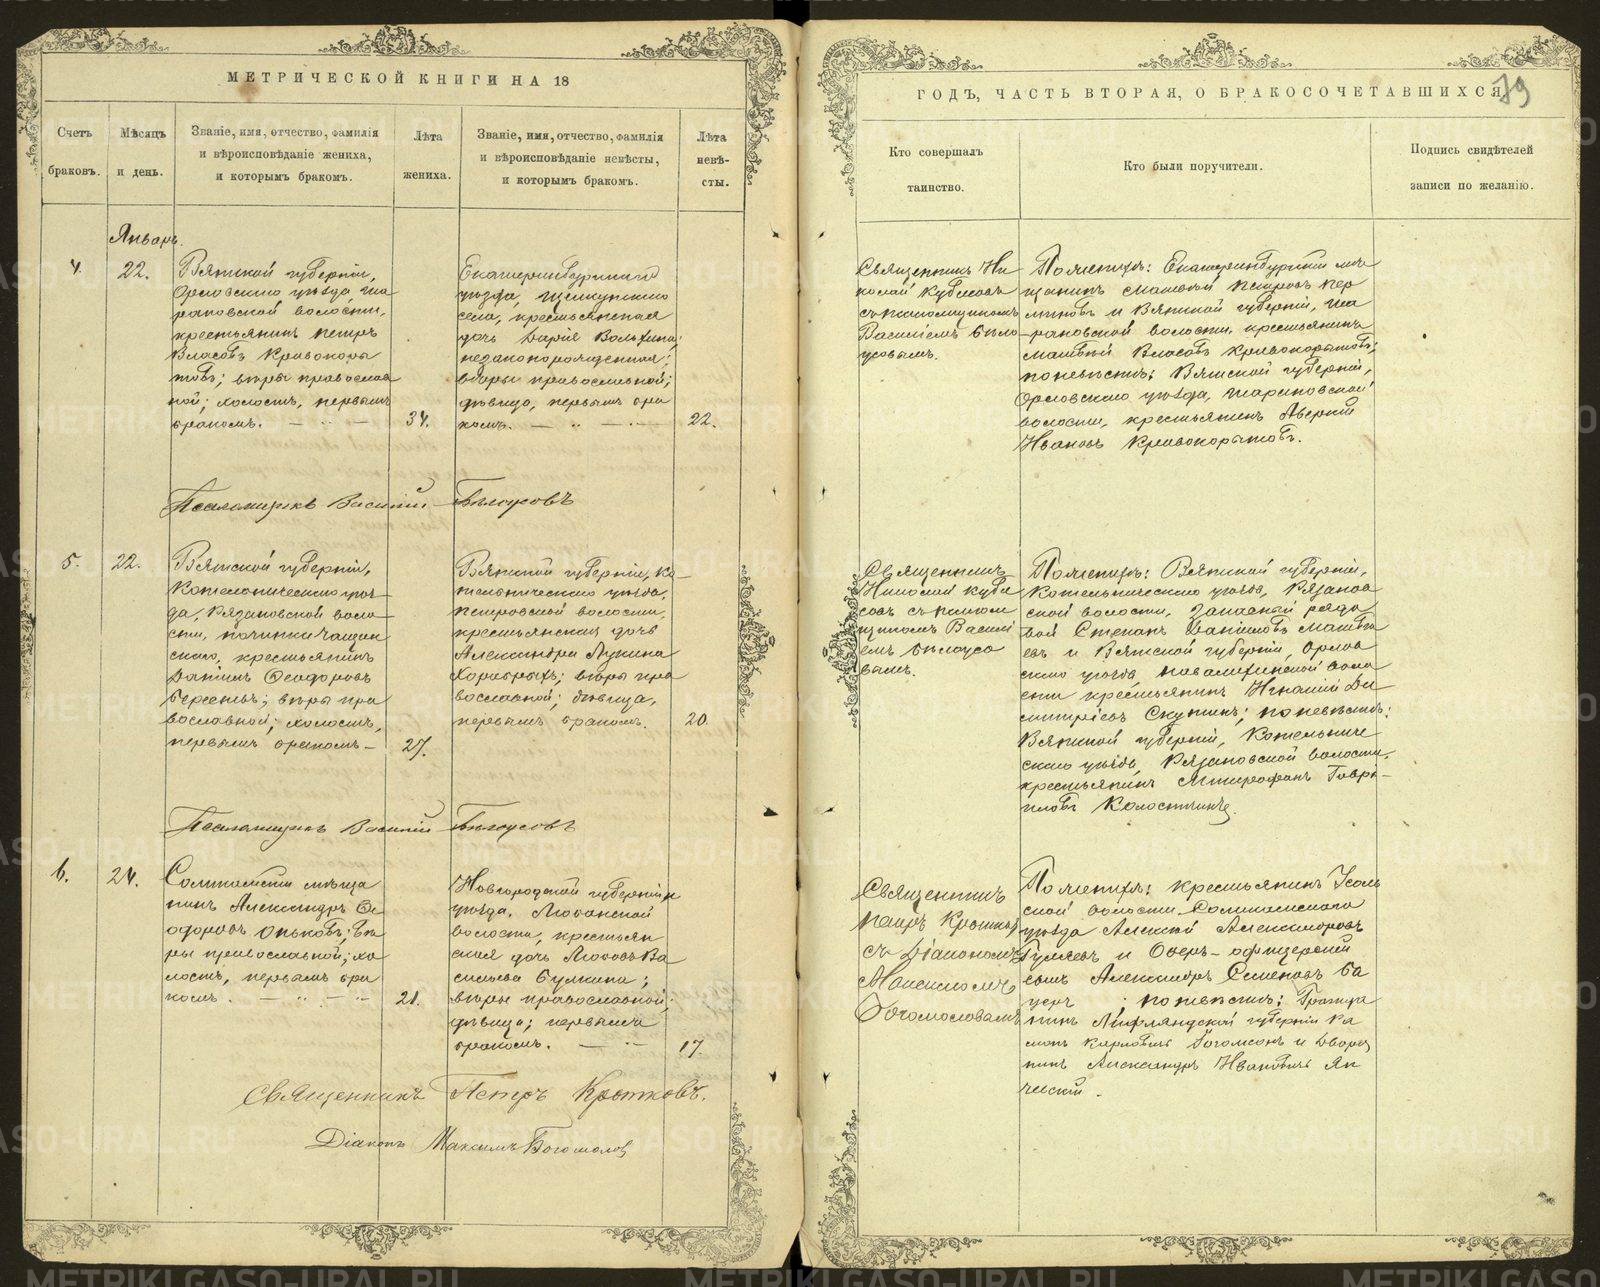 МЕТРИЧЕСКОЙ КНИГИ НА 18
Счетъ
браковъ.
Мѣсяцъ
и день.
Званіе, имя, отчество, фамилія
и вѣроисповѣданіе жениха,
и которымъ бракомъ.
Лѣта
жениха.
Званіе, имя, отчество, фамилія
и вѣроисповѣданіе невѣсты,
и которымъ бракомъ.
Лѣта
невѣ-
сты.
Январь.
4.
22.
Вятской губерніи,
Орловскаго уѣзда, Ша
рановской волости,
крестьянинъ Петръ
Власовъ Кривокоры
товъ; вѣры православ
ной; холостъ, первымъ
бракомъ.
34.
Екатеринбургскаго
уѣзда, Щелкунскаго
села, крестьянская
дочь Дарія
незаконорожденная;
вѣры православной;
дѣвица, первымъ бра
комъ.
22.
Псаломщикъ Василій Бѣлоусовъ
5.
22.
Вятской губерніи,
Котельническаго уѣз
да, Рязановской воло
сти, починка
крестьянинъ
Ѳеодоровъ
вѣры пра
вославной; холостъ,
первымъ бракомъ
27.
Вятской губерніи, Ко
тельническаго уѣзда,
волости,
крестьянская дочь
Александра Лукина
Хоробрыхъ; вѣры пра
вославной; дѣвица,
первымъ бракомъ.
20.
Псаломщикъ Василій Бѣлоусовъ
6.
24.
Соликамскій мѣща
нинъ Александръ Ѳе
одоровъ Оньковъ; вѣ
ры православной; хо
лостъ, первымъ бра
комъ.
21.
Новгородской губерніи и
уѣзда, Любанской
волости, крестьян
ская дочь Любовь Ва
сильева Булкина;
вѣры православной;
дѣвица; первымъ
бракомъ.
17.
Священникъ Петръ Кротковъ.
Діаконъ Максимъ Богомолов
ГОДЪ, ЧАСТЬ ВТОРАЯ, О БРАКОСОЧЕТАВШИХСЯ
79
Кто совершалъ
таинство.
Кто были поручители.
Подпись свидѣтелей
записи по желанію.
Священникъ Ни
колай Кубасовъ
съ псаломщикомъ
Василіемъ Бѣло
усовымъ.
По женихѣ: Екатеринбургскій мѣ
щанинъ Матвѣй Петровъ Пер
миновъ и Вятской губерніи, Ша
рановской волости, крестьянинъ
Матвѣй Власовъ Кривокорытовъ;
по невѣстѣ: Вятской губерніи,
Орловскаго уѣзда, Шарановской
волости, крестьянинъ Аверкій
Ивановъ Кривокорытовъ.
Священникъ
Николай Куба
совъ съ псалом
щикомъ Василі
емъ Бѣлоусо
вымъ.
По женихѣ: Вятской губерніи,
Котельническаго уѣзда, Рязанов
ской волости, запасный рядо
вой Степанъ Даниловъ Матвѣ
евъ и Вятской губерніи, Орлов
скаго уѣзда воло
сти крестьянинъ Игнатій Ди
митріевъ Скутинъ; по невѣстѣ:
Вятской губерніи, Котельниче
скаго уѣзда, Рязановской волости,
крестьянинъ Митрофанъ Гаври
ловъ
Священникъ
Петръ Кротковъ
съ Діакономъ
Максимомъ
Богомоловымъ
По женихѣ: крестьянинъ Усоль
ской волости Соликамскаго
уѣзда Алексѣй Александровъ
Гуляевъ и Оберъ-офицерскій
сынъ Александръ Семеновъ Ба
; по невѣстѣ: Гражда
нинъ Лифляндской губерніи
Карловъ и Дворя
нинъ Александръ Ивановъ Ян
чевскій.
METRIKI.GASO-URAL.RU